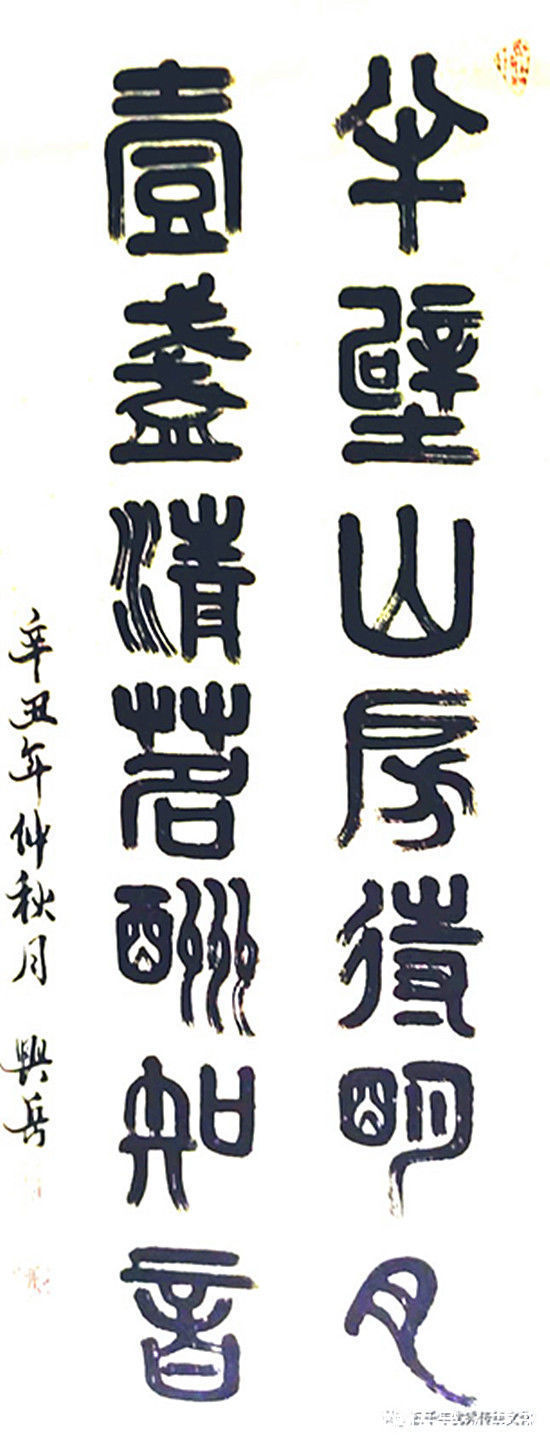 半壁山房待明月
壹盏清茗酬知音
辛丑年仲秋月 兴岳